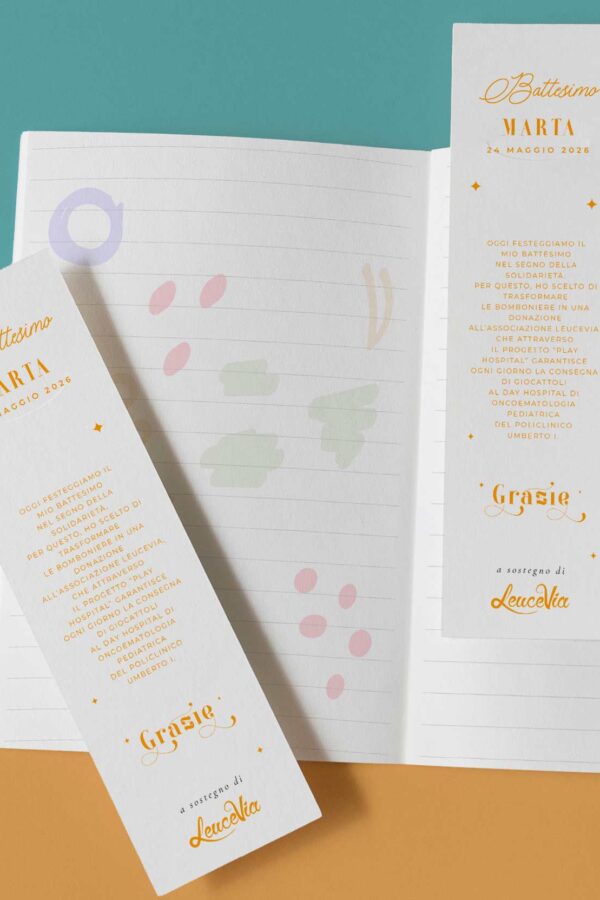 Battesimo
MARTA
24 MAGGIO 2026
OGGI FESTEGGIAMO IL
MIO BATTESIMO
NEL SEGNO DELLA
SOLIDARIETÀ.
PER QUESTO, HO SCELTO DI
TRASFORMARE
LE BOMBONIERE IN UNA
DONAZIONE
ALL'ASSOCIAZIONE LEUCEVIA,
CHE ATTRAVERSO
IL PROGETTO "PLAY
HOSPITAL" GARANTISCE
OGNI GIORNO LA CONSEGNA
DI GIOCATTOLI
AL DAY HOSPITAL DI
ONCOEMATOLOGIA
PEDIATRICA
DEL POLICLINICO
UMBERTO I.
Grazie
a sostegno di
LeuceVia
ttesimo
ARTA
MAGGIO 2026
OGGI FESTEGGIAMO IL
MIO BATTESIMO
NEL SEGNO DELLA
SOLIDARIETÀ.
PER QUESTO, HO SCELTO DI
TRASFORMARE
LE BOMBONIERE IN UNA
DONAZIONE
ALL'ASSOCIAZIONE LEUCEVIA,
CHE ATTRAVERSO
IL PROGETTO "PLAY
HOSPITAL" GARANTISCE
OGNI GIORNO LA CONSEGNA
DI GIOCATTOLI
AL DAY HOSPITAL DI
ONCOEMATOLOGIA
PEDIATRICA
DEL POLICLINICO
UMBERTO I.
Grazie
a sostegno di
LeuceVia